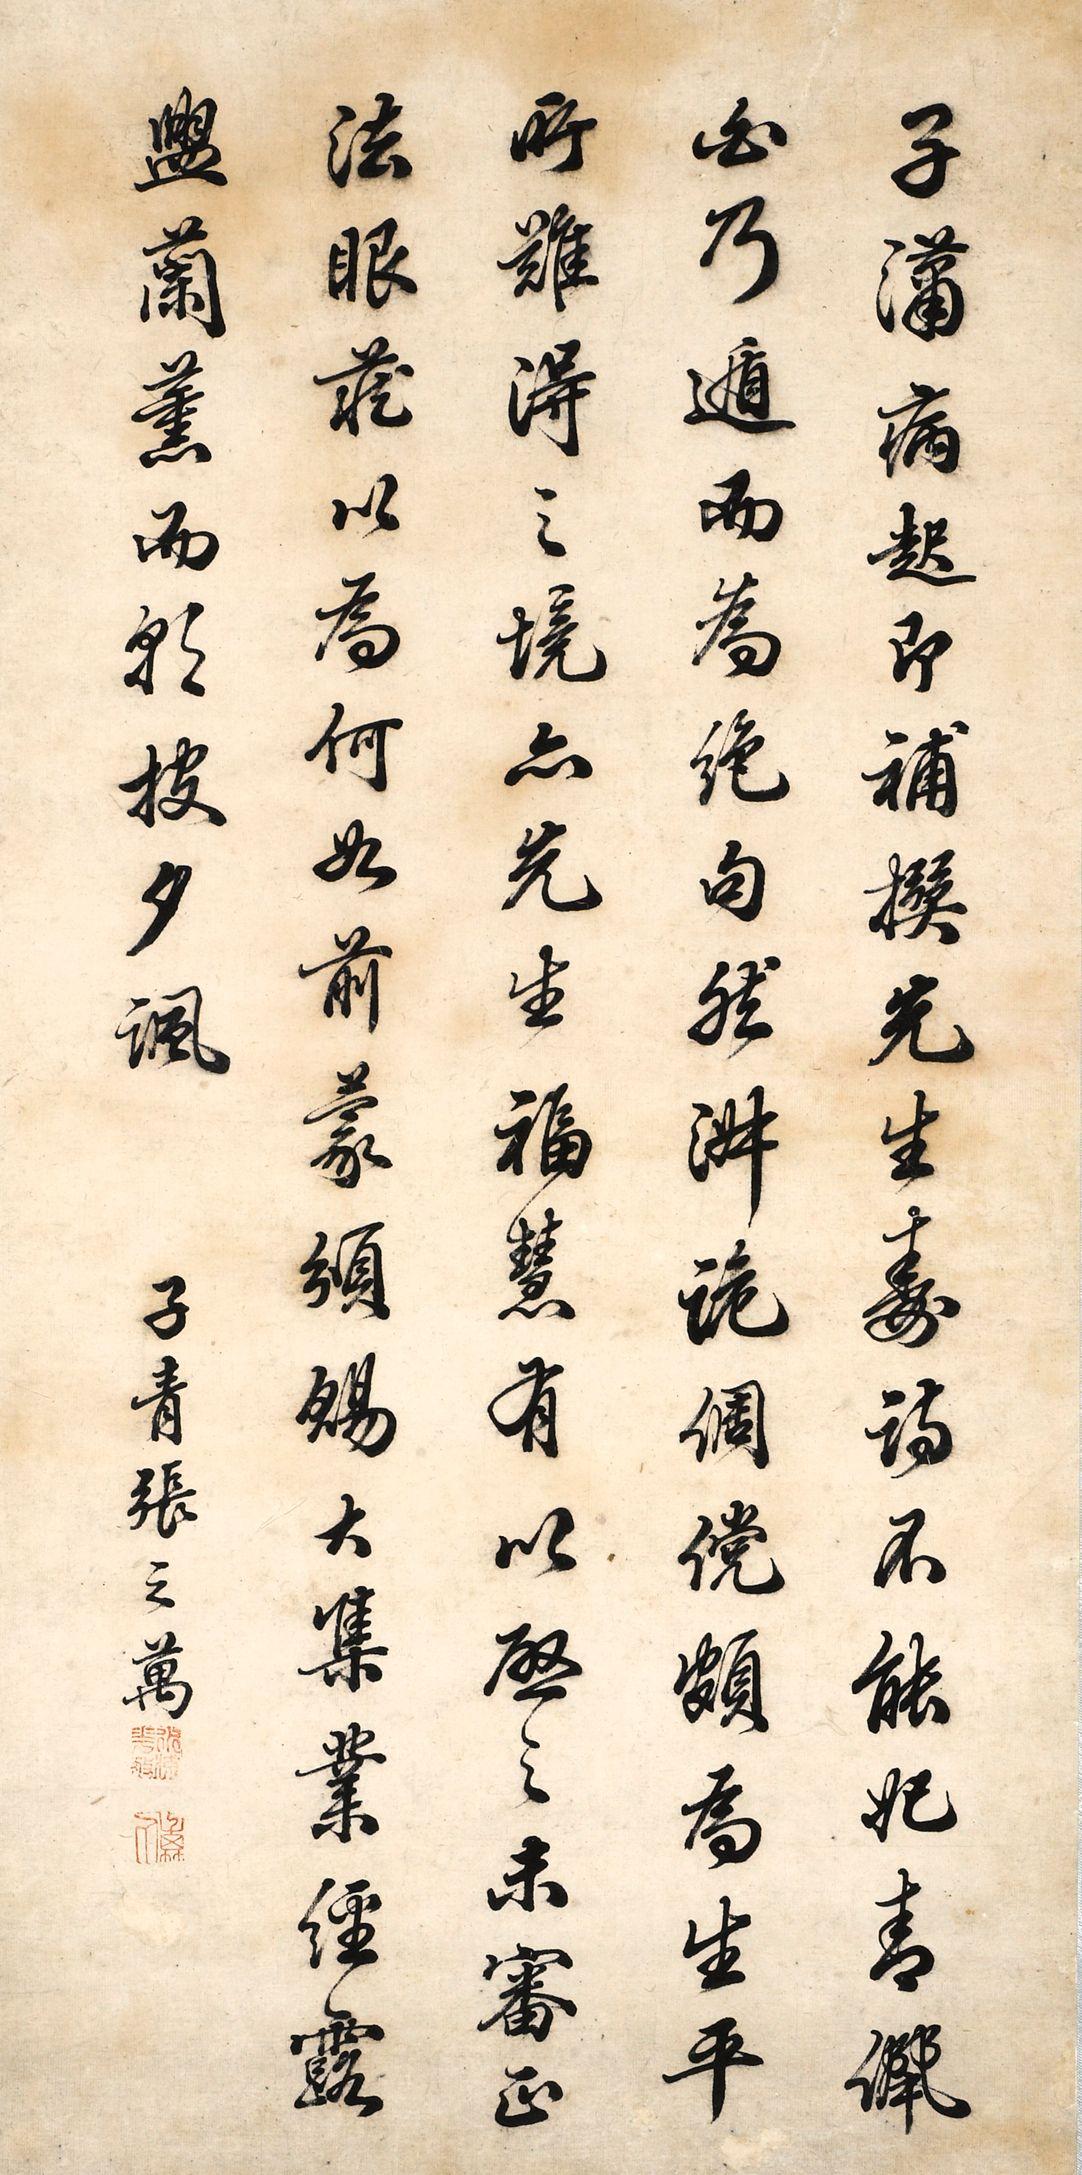 子瀟病起即補撰先生壽詩不能妃青儷
白乃遁而為絶句然洴詭倜儻頗為生平
所難得之境亦先生福慧有以啟之未審正
法眼藏以為何如前蒙頒賜大集業經露
盥蘭薰而朝披夕諷
子青張之萬